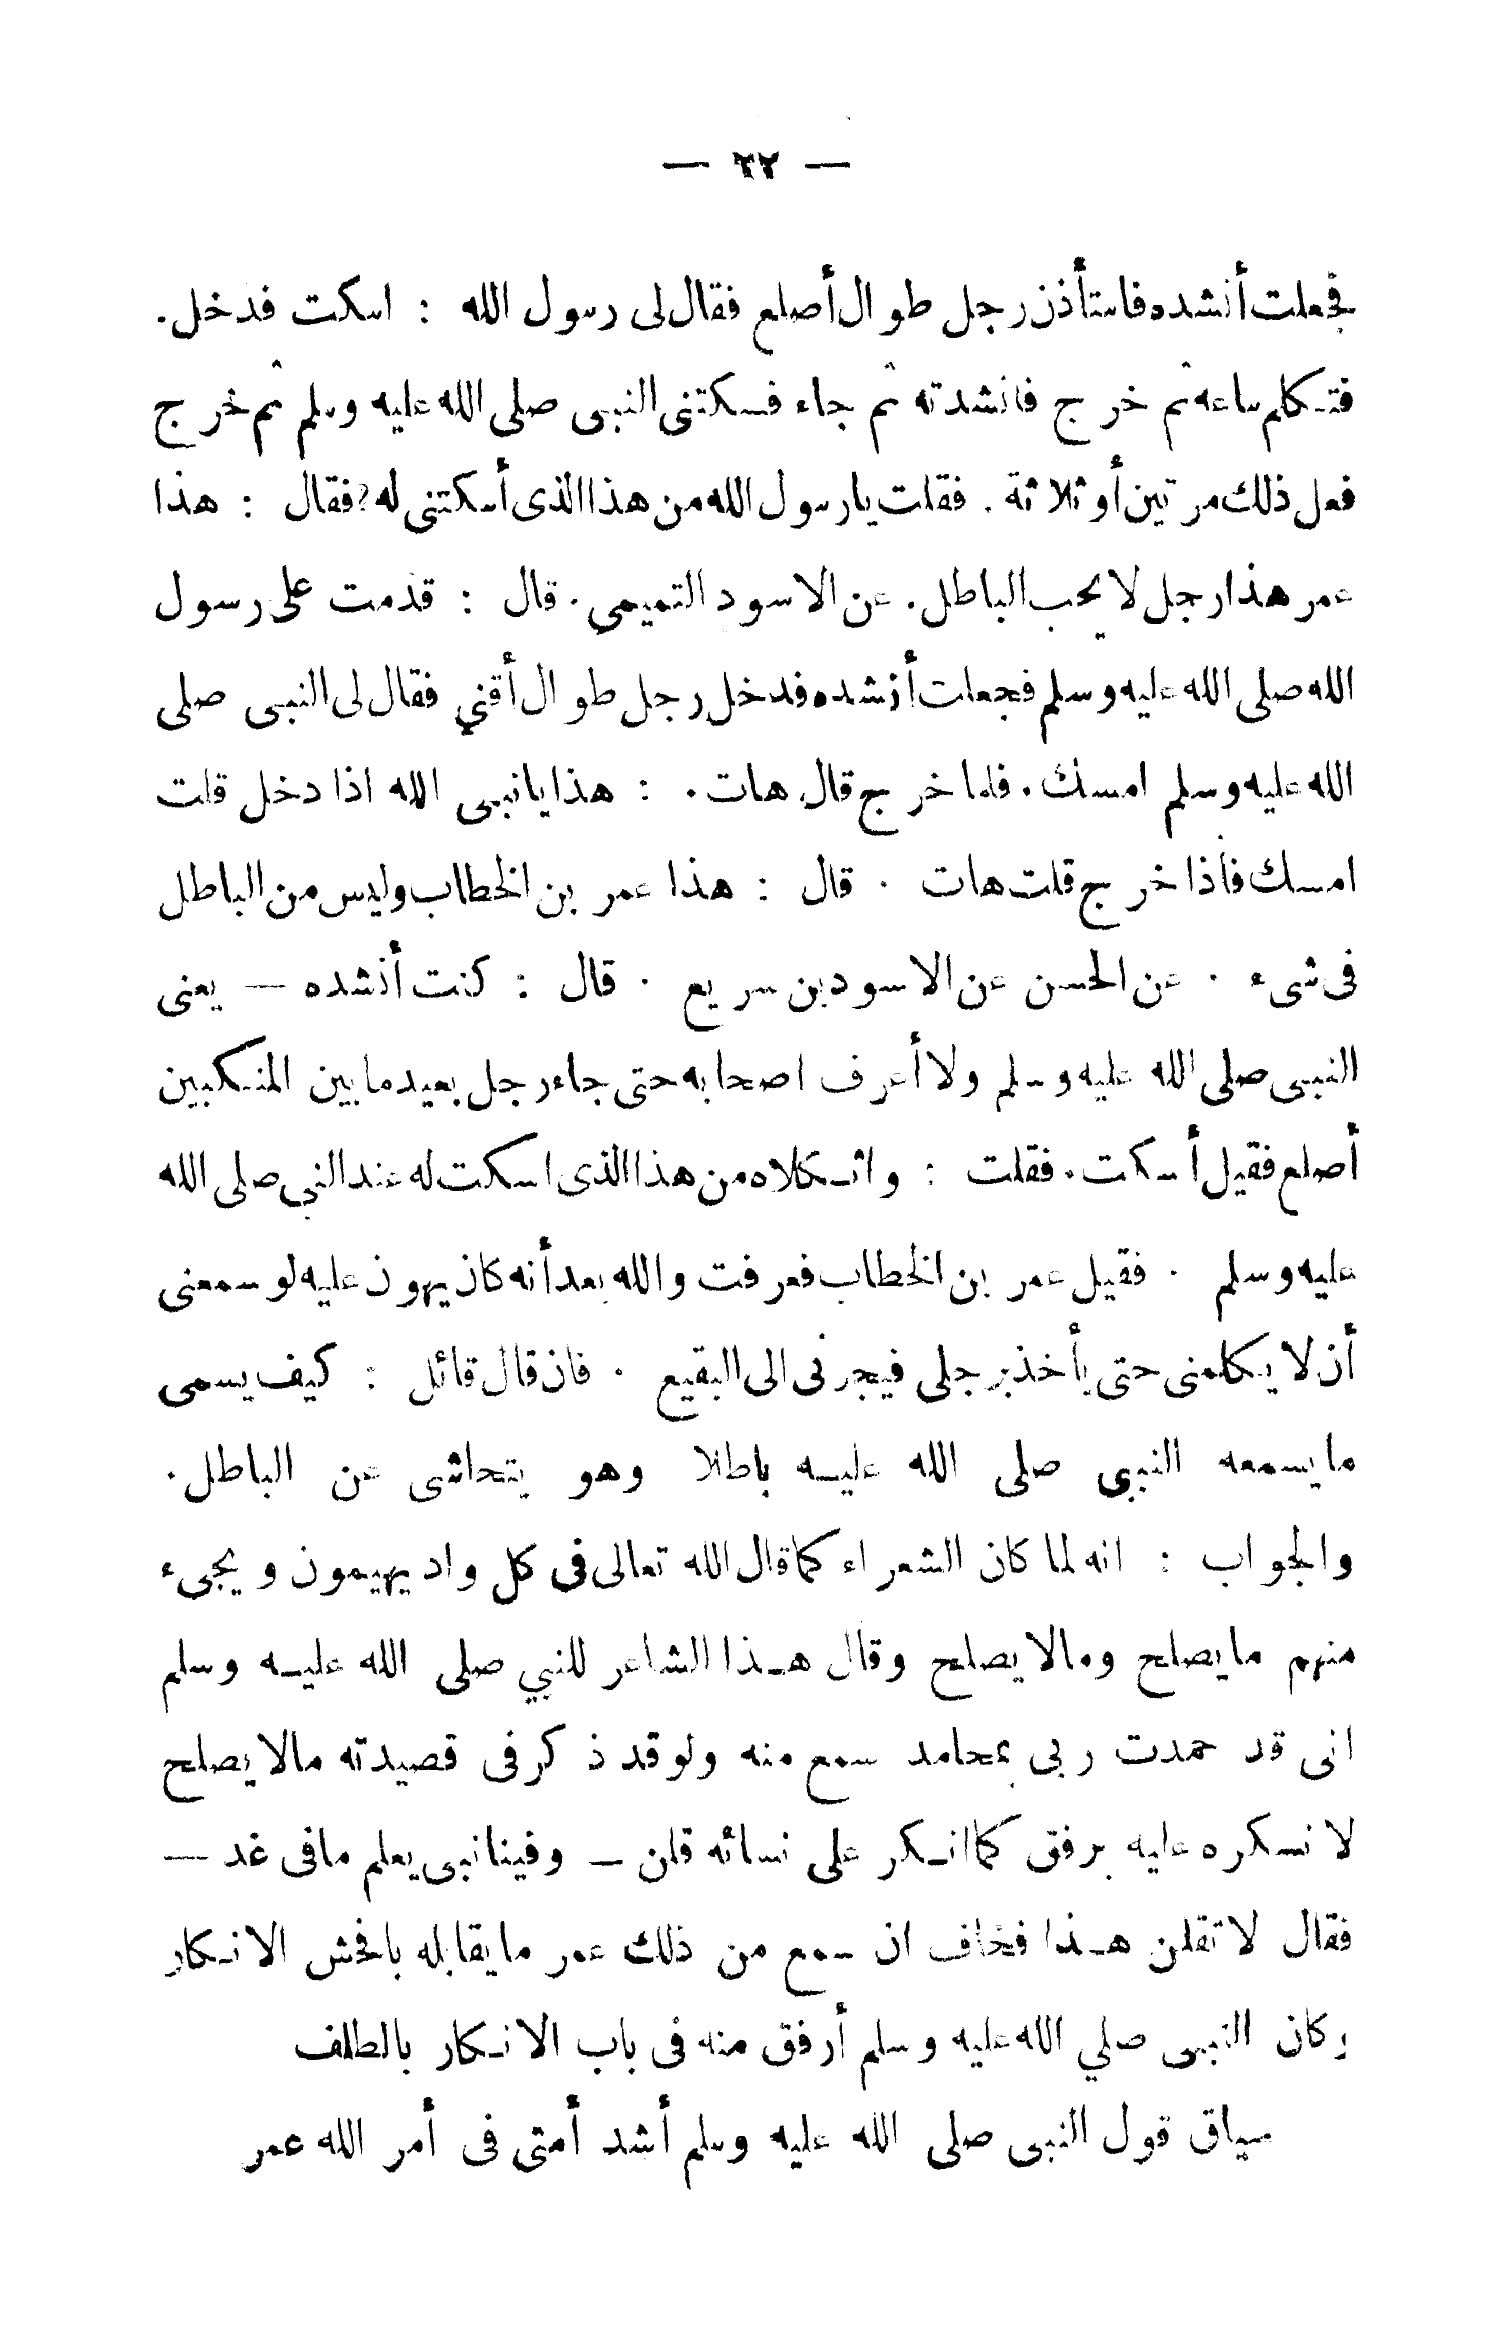 — ٣٢ —
فجعلت أنشده فاستأذن رجل طوال أصلع فقال لى رسول الله : اسكت فدخل.
فتكلم ساعه ثم خرج فانشدته ثم جاء فسكتنى النبى صلى الله عليه وسلم ثم خرج
فعل ذلك مرتين أو ثلاثة . فقلت يا رسول الله من هذا الذى أسكتنى له؟ فقال : هذا
عمر هذا رجل لا يحب الباطل. عن الاسود التميمى. قال : قدمت على رسول
الله صلى الله عليه وسلم فجعلت أنشده فدخل رجل طوال أقنى فقال لى النبى صلى
الله عليه وسلم امسك. فلما خرج قال هات. : هذا يا نبى الله اذا دخل قلت
امسك فأذا خرج قلت هات . قال : هذا عمر بن الخطاب وليس من الباطل
فى شىء . عن الحسن عن الاسود بن سريع . قال : كنت أنشده — يعنى
النبى صلى الله عليه وسلم ولا أعرف اصحابه حتى جاء رجل بعيد ما بين المنكبين
أصلع فقيل أسكت. فقلت : واثكلاه من هذا الذى اسكت له عند النبى صلى الله
عليه وسلم . فقيل عمر بن الخطاب فعرفت والله بعد أنه كان يهون عليه لو سمعنى
أن لا يكلمنى حتى يأخذ برجلى فيجرنى الى البقيع . فان قال قائل : كيف يسمى
ما يسمعه النبى صلى الله عليه باطلا وهو يتحاشى عن الباطل.
والجواب : انه لما كان الشعراء كما قال الله تعالى فى كل واد يهيمون ويجىء
منهم ما يصلح وما لا يصلح وقال هذا الشاعر للنبي صلى الله عليه وسلم
انى قد حمدت ربى بمحامد سمع منه ولو قد ذكر فى قصيدته ما لا يصلح
لا نسكره عليه برفق كما انكر على نسائه قلن — وفينا نبى يعلم ما فى غد —
فقال لا تقلن هذا فخاف ان سمع من ذلك عمر ما يقابله بافحش الانكار
وكان النبى صلي الله عليه وسلم أرفق منه فى باب الانكار بالطلف
سياق قول النبى صلى الله عليه وسلم أشد أمتى فى أمر الله عمر